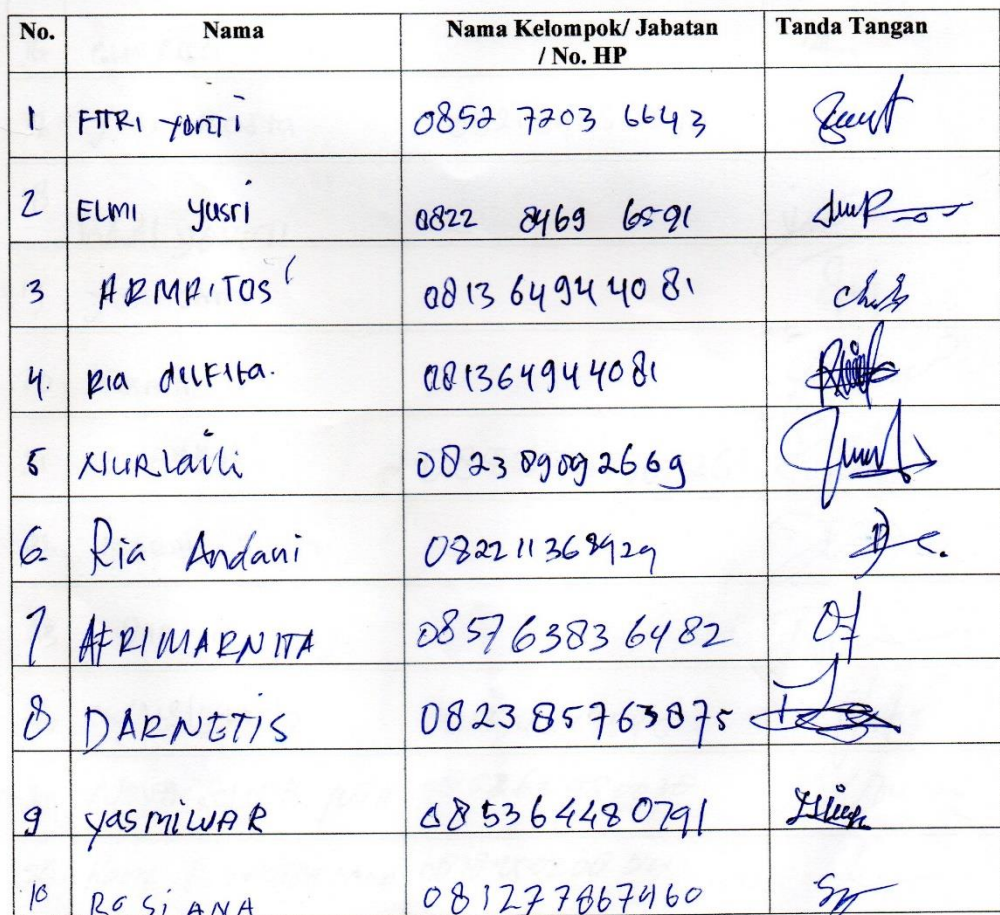 No. Nama Nama Kelompok/ Jabatan / No. HP Tanda Tangan
1 FITRI YONTI 0852 7203 6643
2 ELMI Yusri 0822 8469 6591
3 ARMAITOS 0813 6494 4081
4. Ria dilFita. 081364944081
5 NURLaili 082389092669
6. Ria Andani 082211368929
7 AFRIMARNITA 085763836482
8 DARNETIS 082385763875
9 YASMIWAR 085364480791
10 ROSIANA 081277867960